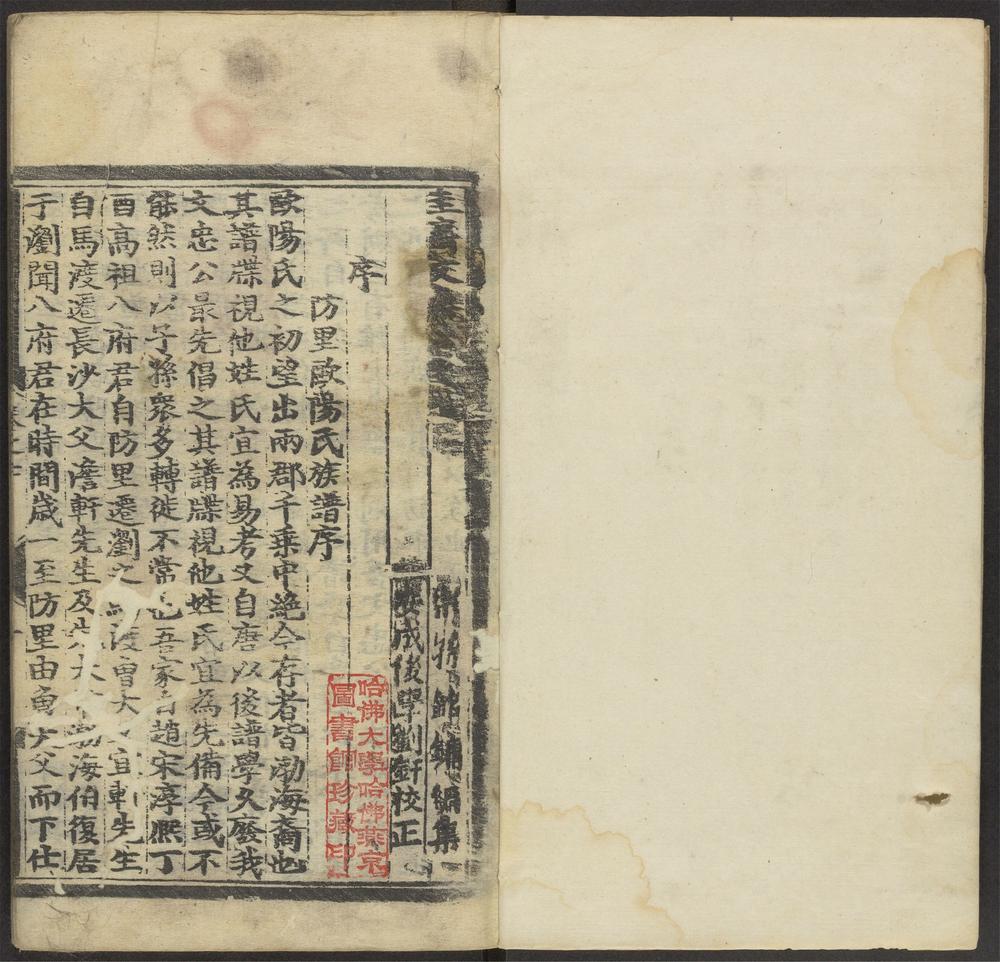 圭齋文集卷之
宗孫銘鏞編集
安成後學劉釪校正
序
防里歐陽氏族譜序
歐陽氏之初望出兩郡千乗中絶今存者皆渤海裔也
其譜牒視他姓氏宜為易考又自唐以後譜學久廢我
文忠公最先倡之其譜牒視他姓氏宜為先備今或不
能然則以子孫衆多轉徙不常也吾家自趙宋淳熈丁
酉高祖八府君自防里遷瀏之馬渡曾大父宜軒先生
自馬渡遷長沙大父澹軒先生及先大父渤海伯復居
于瀏聞八府君在時間歳一至防里由曾大父而下仕
哈佛大學哈佛燕京
圖書館珍藏印